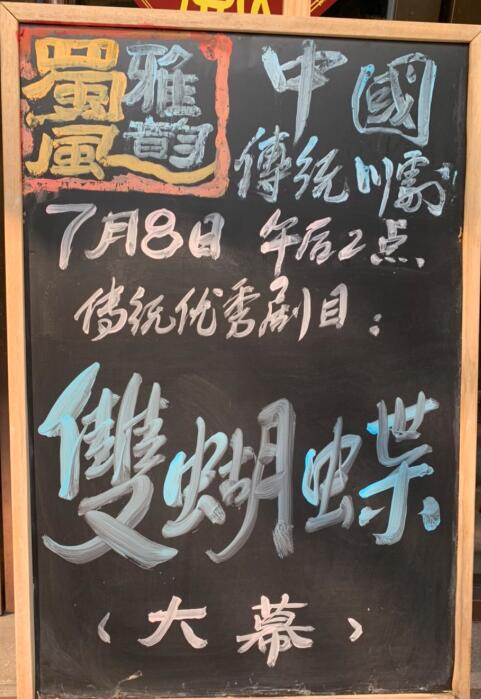 蜀風雅韵
中國
傳統川劇
7月8日 午后2点
传统优秀剧目:
雙蝴蝶
〈大幕〉